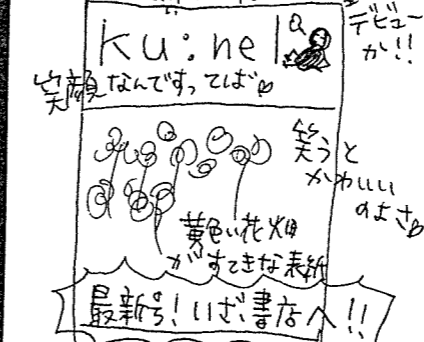 デビュー
か!!
ku:nel
笑顔なんですってば
笑うと
かわいい
のよさ
黄色い花畑
がすてきな表紙
最新号!いざ書店へ!!